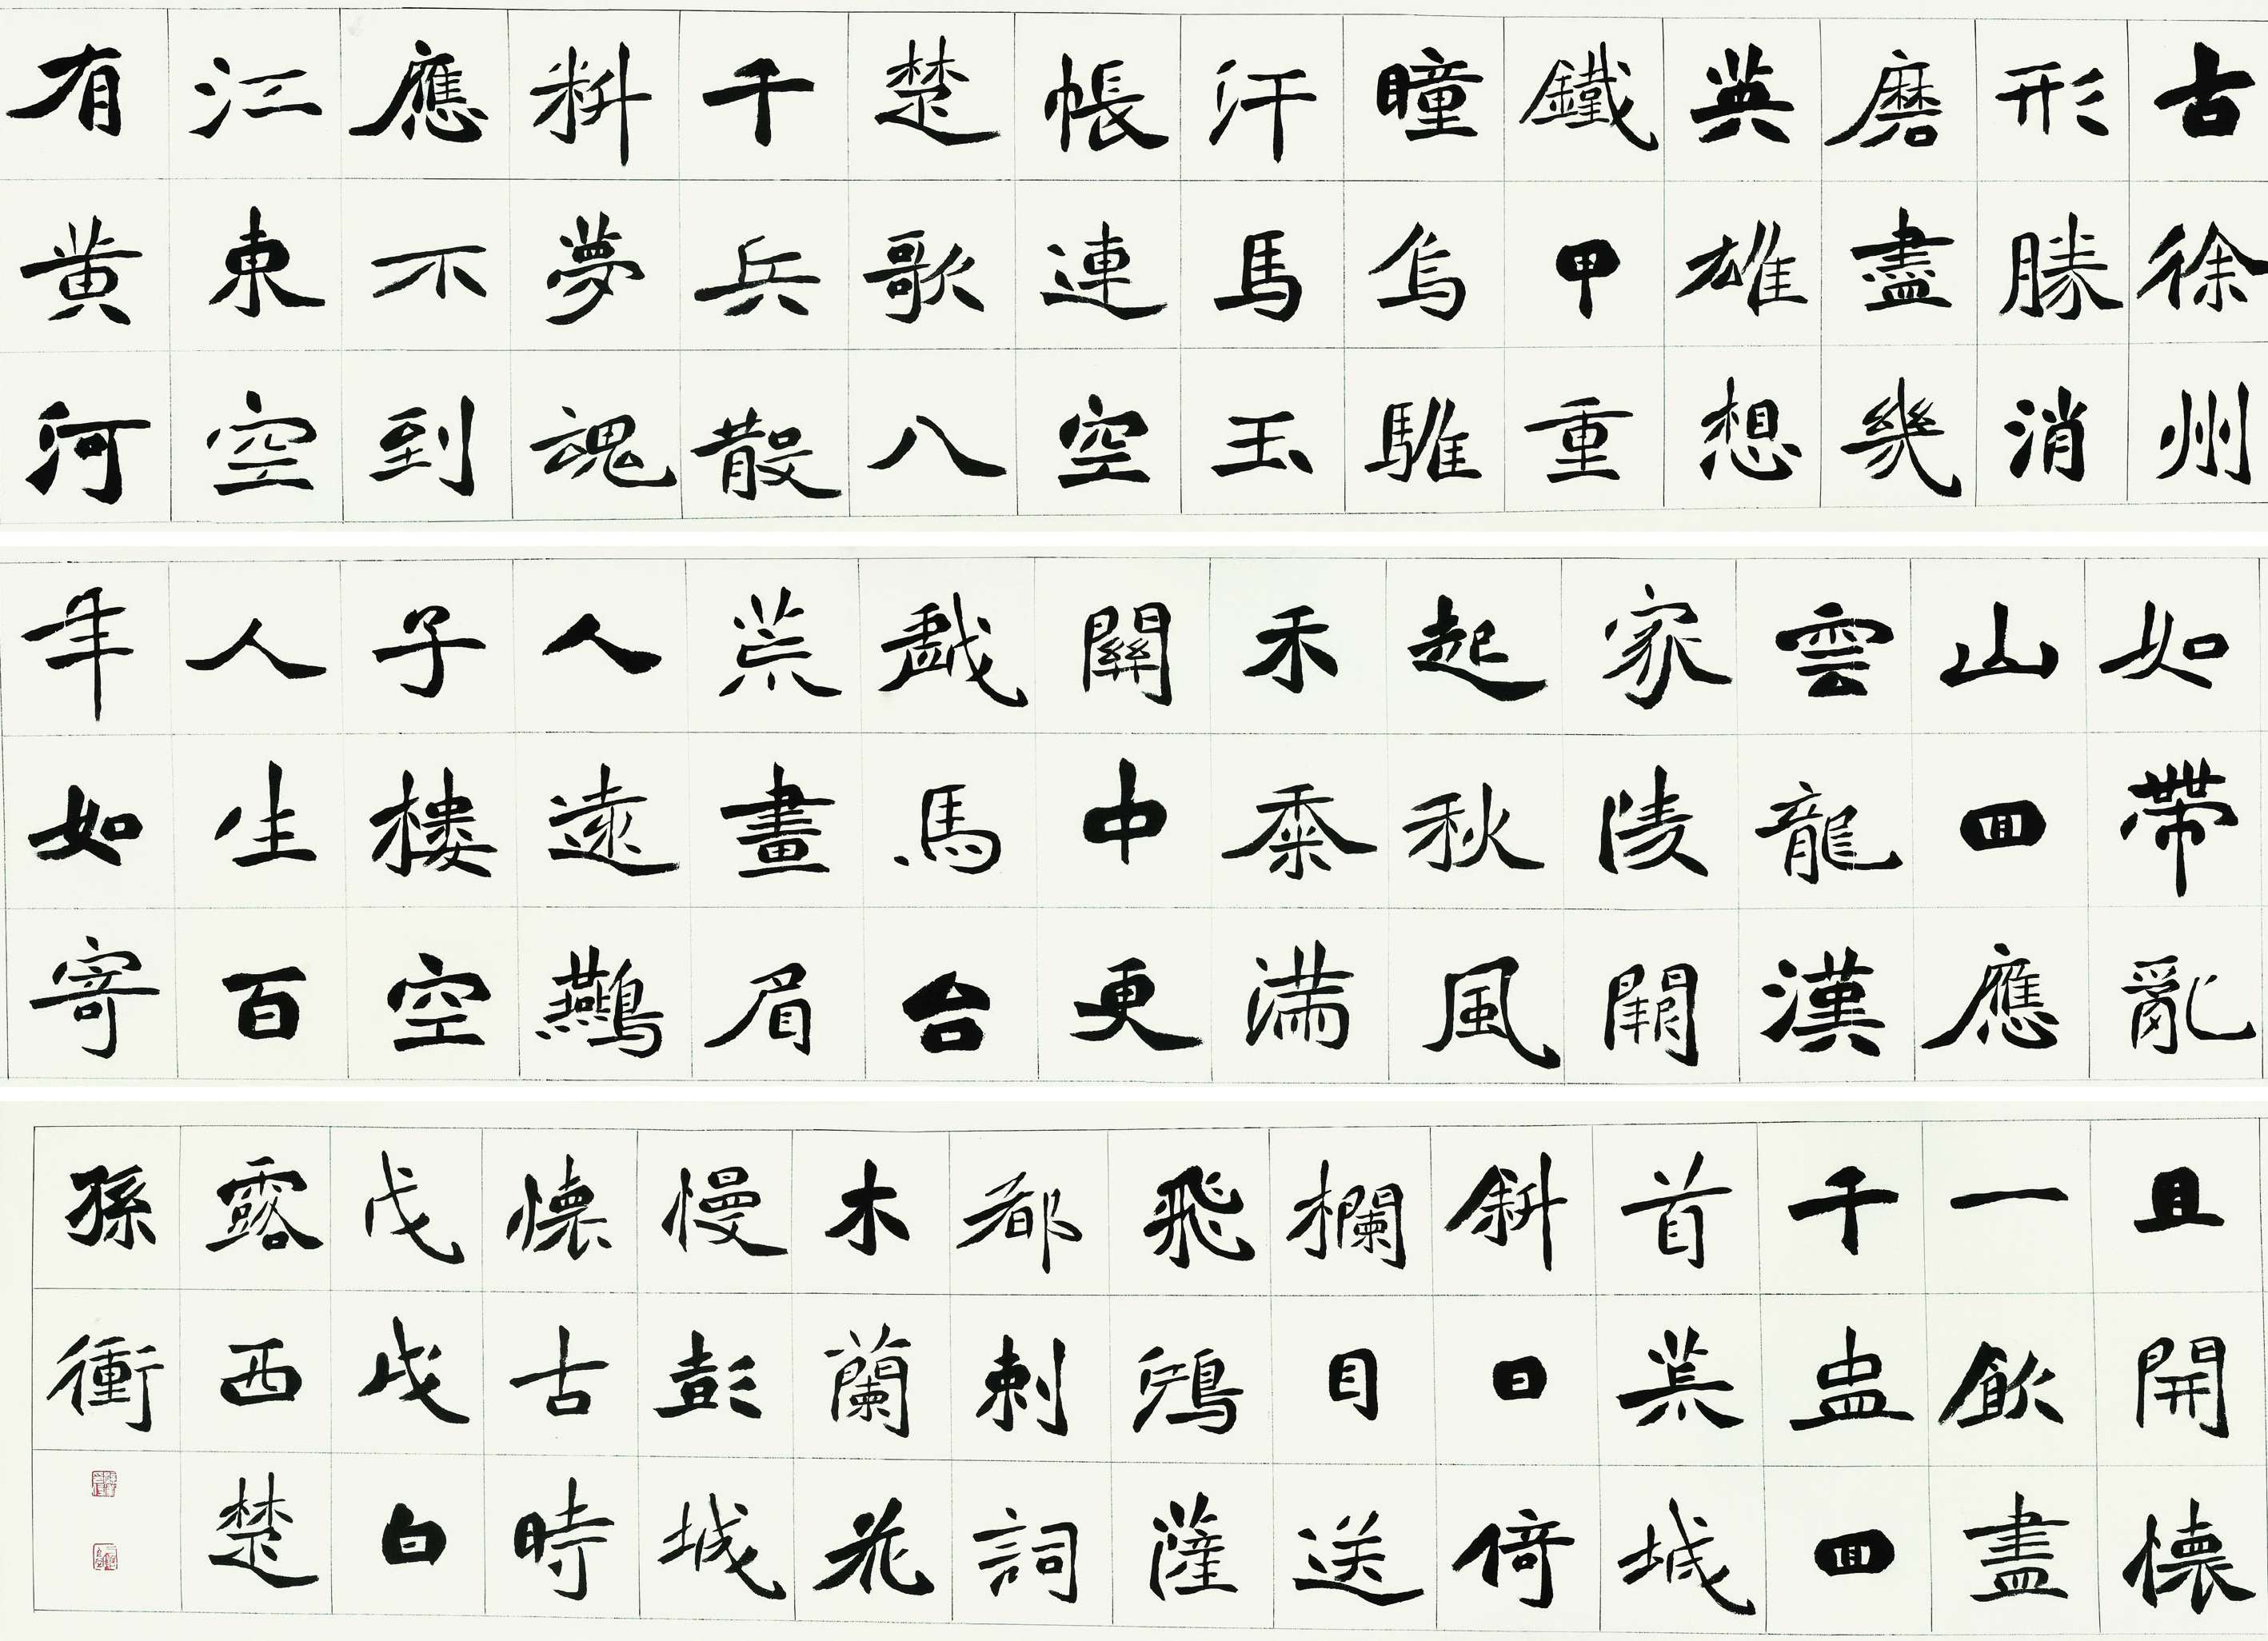 古徐州
形勝消
磨盡幾
英雄想
鐵甲重
瞳烏騅
汗馬玉
帳連空
楚歌八
千兵散
料夢魂
應不到
江東空
有黄河
如帶亂
山回應
雲龍漢
家陵闕
起秋風
禾黍滿
關中更
戲馬台
荒畫眉
人遠鷰
子樓空
人生百
年如寄
且開懷
一飲盡
千盅回
首荒城
斜日倚
欄目送
飛鴻薩
都剌詞
木蘭花
慢彭城
懷古時
戊戌白
露西楚
孫衝